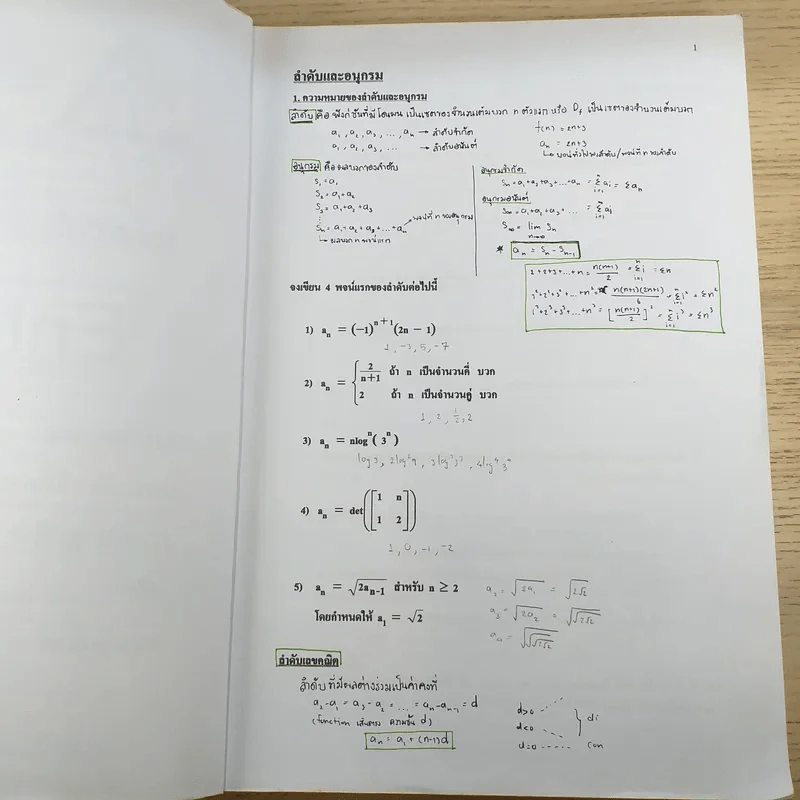 1
ลำดับและอนุกรม
1. ความหมายของลำดับและอนุกรม
ลำดับ คือ ฟังก์ชันที่มีโดเมน เป็นเซตของจำนวนเต็มบวก n ตัวแรก หรือ D_f เป็นเซตของจำนวนเต็มบวก
a₁, a₂, a₃, ..., aₙ → ลำดับจำกัด
a₁, a₂, a₃, ... → ลำดับอนันต์
f(n) = 2n+3
aₙ = 2n+3
↳ พจน์ทั่วไปของลำดับ/พจน์ที่ n ของลำดับ
อนุกรม คือ ผลบวกของลำดับ
S₁ = a₁
S₂ = a₁+a₂
S₃ = a₁+a₂+a₃
⋮
Sₙ = a₁+a₂+a₃+...+aₙ → พจน์ที่ n ของอนุกรม
↳ ผลบวก n พจน์แรก
อนุกรมจำกัด
Sₙ = a₁+a₂+a₃+...+aₙ = Σ aᵢ = Σaₙ
อนุกรมอนันต์
S∞ = a₁+a₂+a₃+... = Σ aᵢ
S∞ = lim Sₙ
n→∞
* aₙ = Sₙ - Sₙ₋₁
+2+3+...+n = n(n+1)/2 = Σ i = Σn
1²+2²+3²+...+n² = n(n+1)(2n+1)/6 = Σ i² = Σn²
1³+2³+3³+...+n³ = [n(n+1)/2]² = Σ i³ = Σn³
จงเขียน 4 พจน์แรกของลำดับต่อไปนี้
1) aₙ = (−1)ⁿ⁺¹(2n − 1)
1, -3, 5, -7
2) aₙ = { 2/(n+1) ถ้า n เป็นจำนวนคี่ บวก
2 ถ้า n เป็นจำนวนคู่ บวก
1, 2, 1/2, 2
3) aₙ = nlogⁿ(3ⁿ)
log3, 2log²9, 3log³3³, 4log⁴3⁴
4) aₙ = det([1 n
1 2])
1, 0, -1, -2
5) aₙ = √(2aₙ₋₁) สำหรับ n ≥ 2
โดยกำหนดให้ a₁ = √2
a₂ = √(2a₁) = √(2√2)
a₃ = √(2a₂) = √√(2√2)
a₄ = √√√(2√2)
ลำดับเลขคณิต
ลำดับ ที่มีผลต่างร่วมเป็นค่าคงที่
a₂-a₁ = a₃-a₂ = ... = aₙ-aₙ₋₁ = d
(function เส้นตรง ความชัน d)
aₙ = a₁+(n-1)d
d>0
d<0 } di
d=0 con